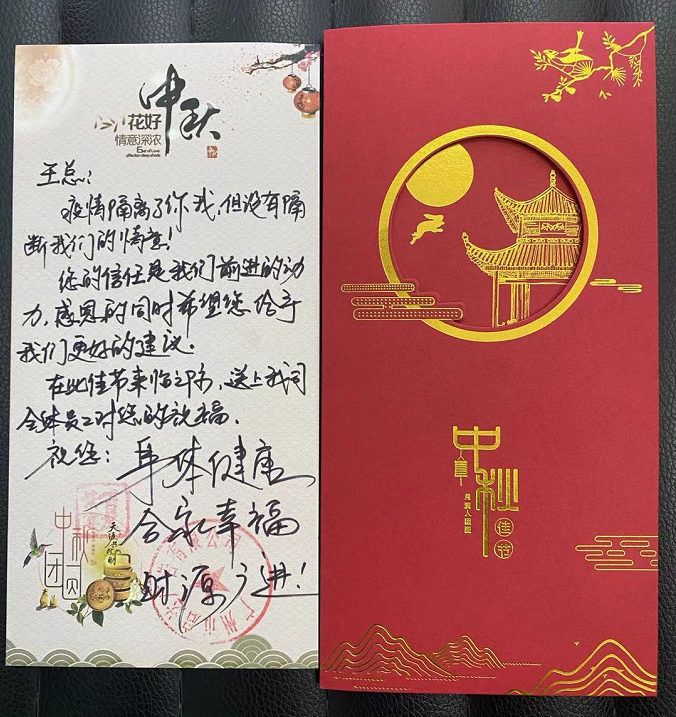 中秋
花好
情意深浓
王总:
疫情隔离了你我,但没有隔
断我们的情意!
您的信任是我们前进的动
力,感恩的同时希望您给予
我们更好的建议.
在此佳节来临之际,送上我司
全体员工对您的祝福.
祝您:身体健康
合家幸福
财源广进!
中秋
团圆
中秋
佳节